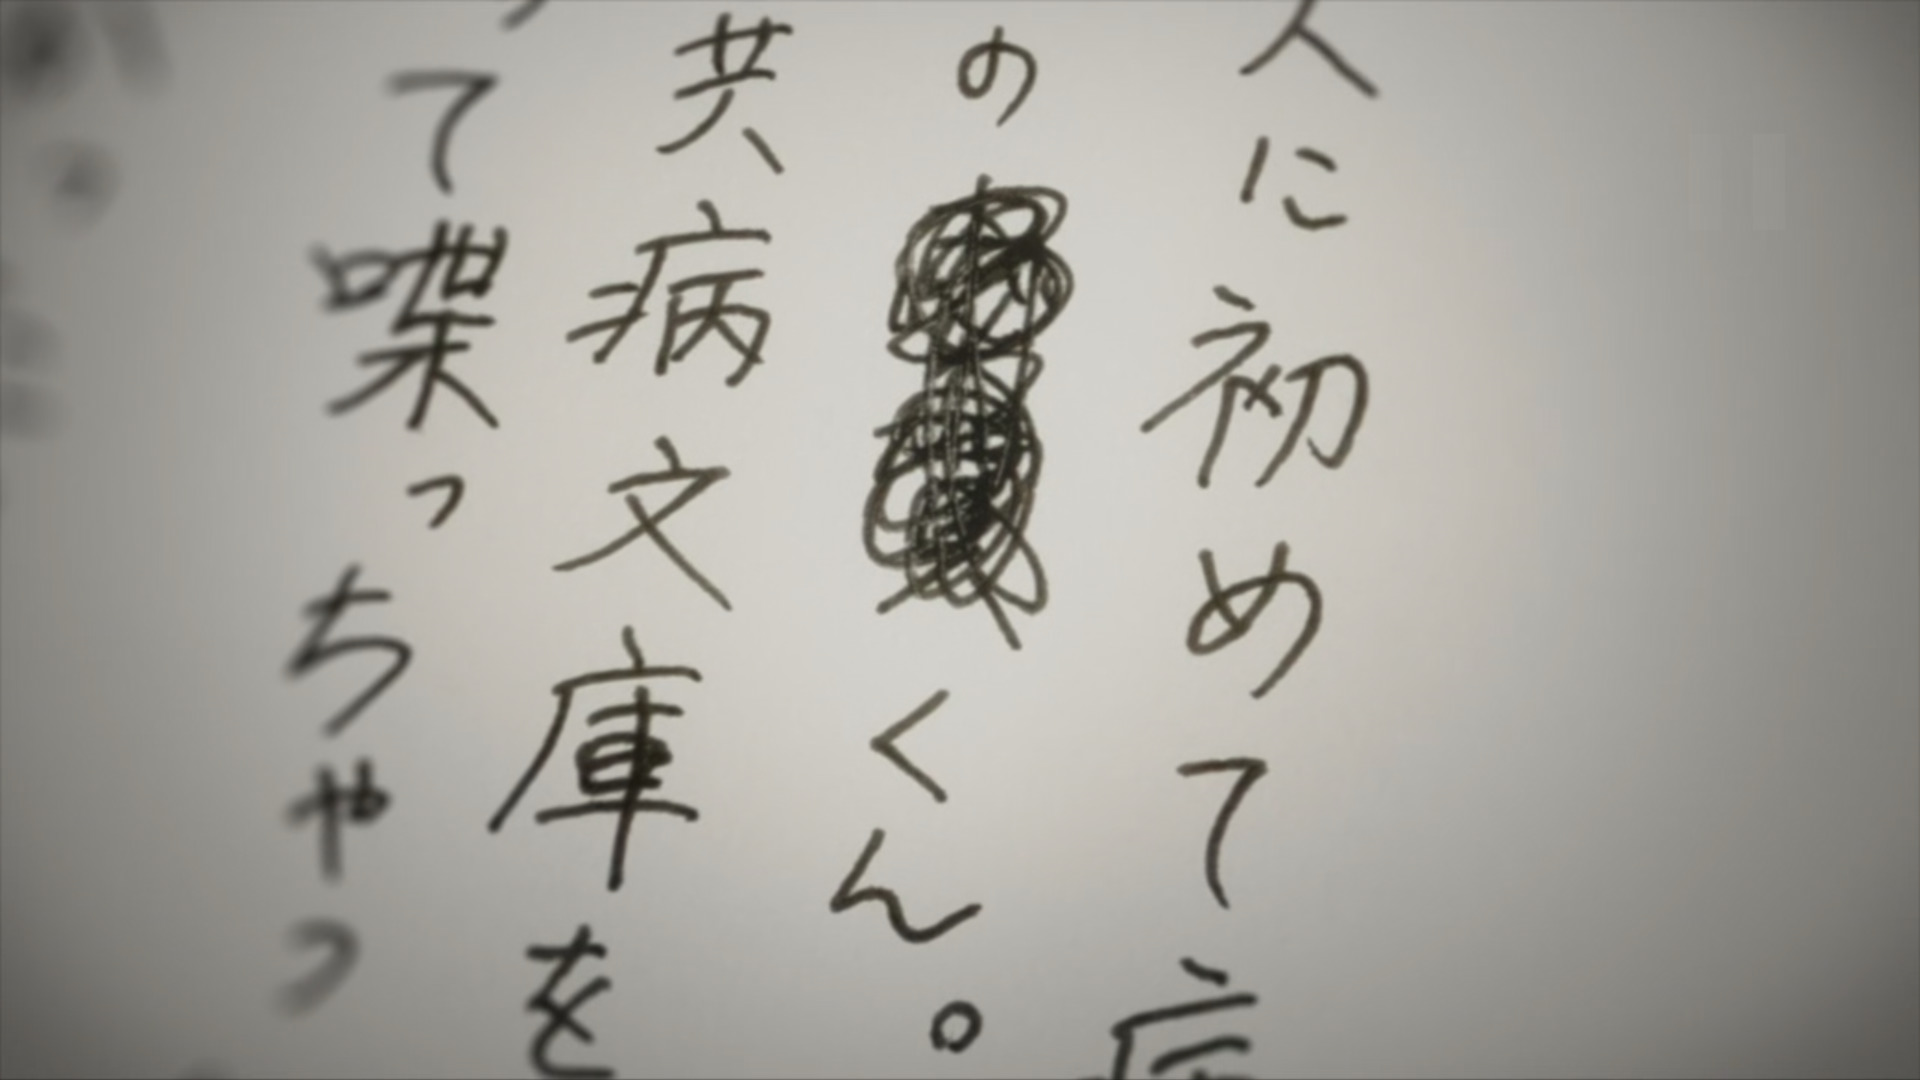 人に初めて病
のくん。
共病文庫を
って喋っちゃっ